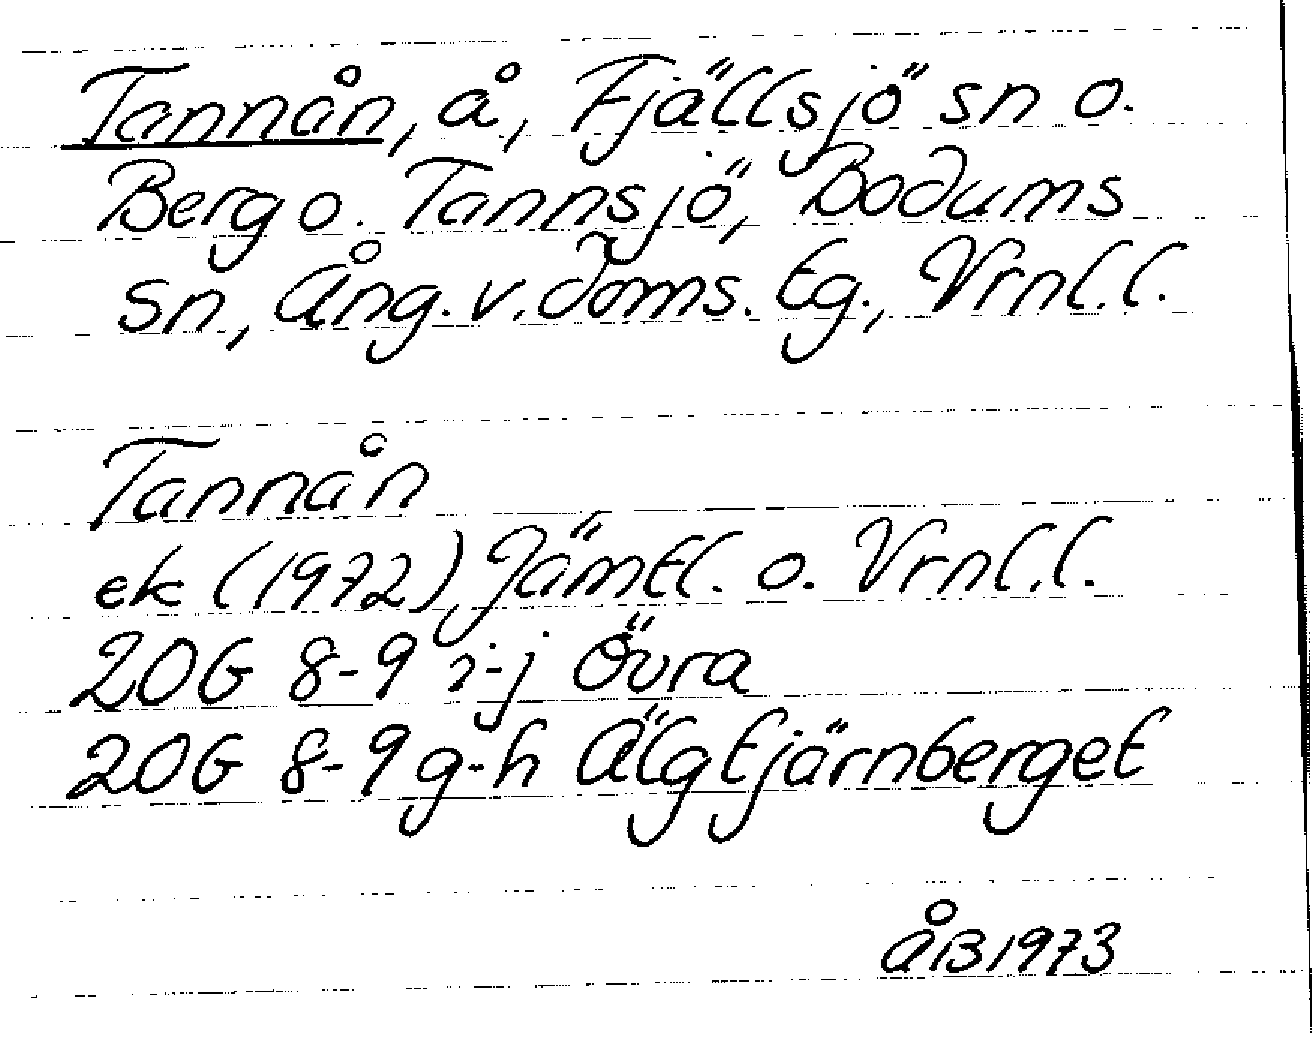 Tannån, å, Fjällsjö sn o.
Berg o. Tannsjö, Bodums
sn, Ång. v. doms. tg., Vrnl. l.
Tannån
ek (1972) Jämtl. o. Vrnl. l.
20G 8-9 i-j Övra
20G 8-9 g-h Älgtjärnberget
ÅB 1973